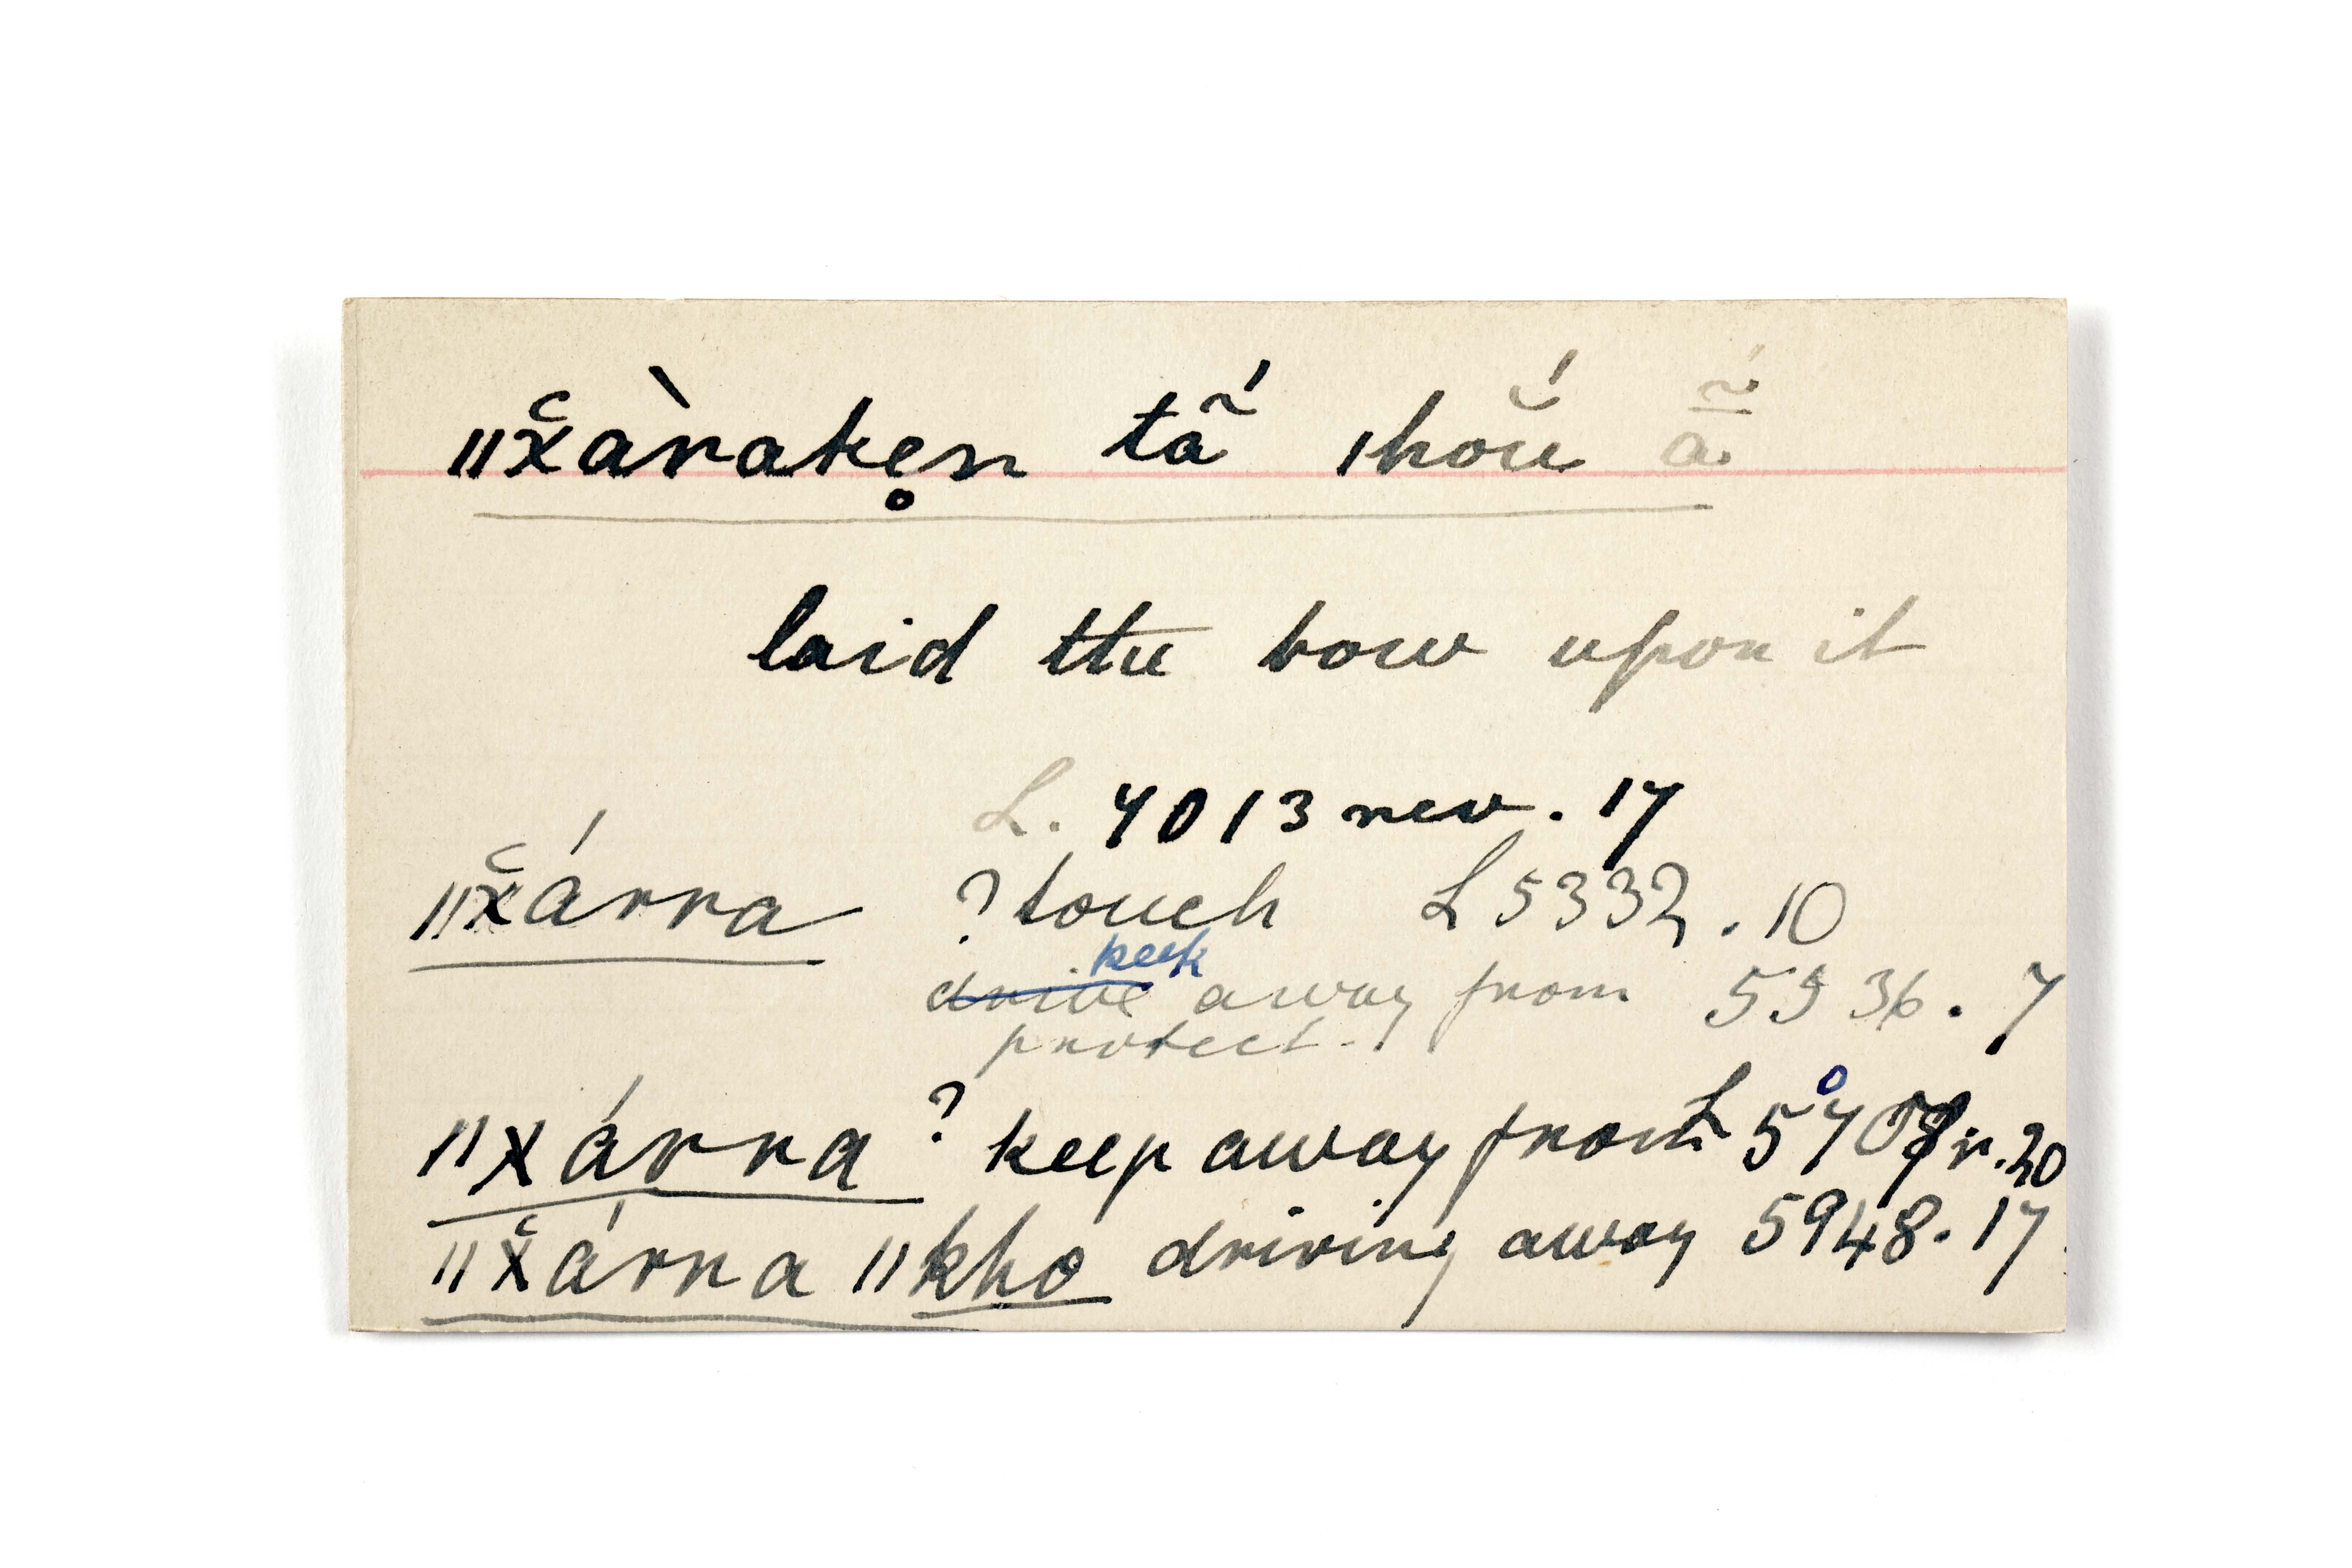 ǁx̆àraken̥ tã́ ǀhóŭ ã̄́
laid the bow upon it
L. 4013 rev. 17
ǁx̆árra ? touch L 5332 . 10
keep
drive away from 5536 . 7
protect.
ǁxárra ? keep away from L r. 20
ǁx̆árra ǁkho driving away 5948. 17